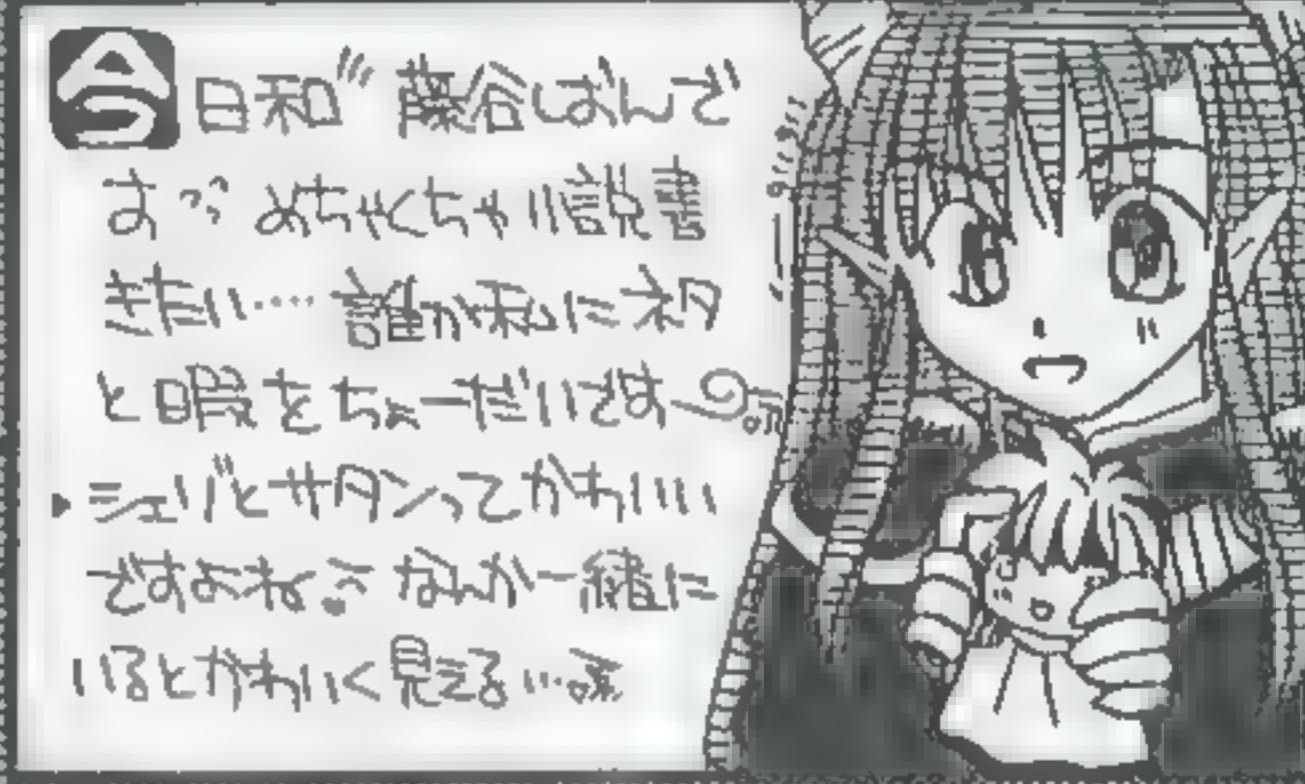 今日和〃藤谷しおんで
す〃 めちゃくちゃ小説書
きたい…誰か私にネタ
と暇をちょーだいです
シェゾとサタンってかわいい
ですよね。なんか一緒に
いるとかわいく見える…